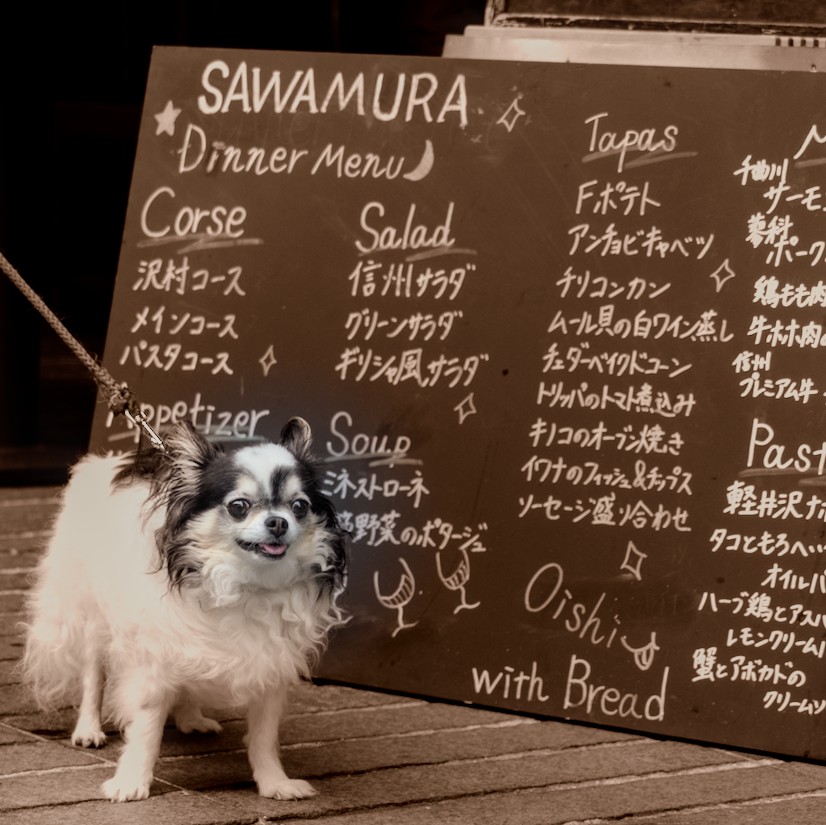 SAWAMURA
Dinner Menu
Corse
沢村コース
メインコース
パスタコース
Appetizer
Salad
信州サラダ
グリーンサラダ
ギリシャ風サラダ
Soup
ミネストローネ
野菜のポタージュ
Tapas
F.ポテト
アンチョビキャベツ
チリコンカン
ムール貝の白ワイン蒸し
チェダーベイクドコーン
トリッパのトマト煮込み
キノコのオーブン焼き
イワナのフィッシュ&チップス
ソーセージ盛り合わせ
Oishi
with Bread
千曲川
サーモ
蓼科
ポーク
鶏もも肉
牛ホホ肉の
信州
プレミアム牛
Past
軽井沢ナポ
タコともろヘ…
オイルパ
ハーブ鶏とアスパ
レモンクリーム
蟹とアボカドの
クリームソ